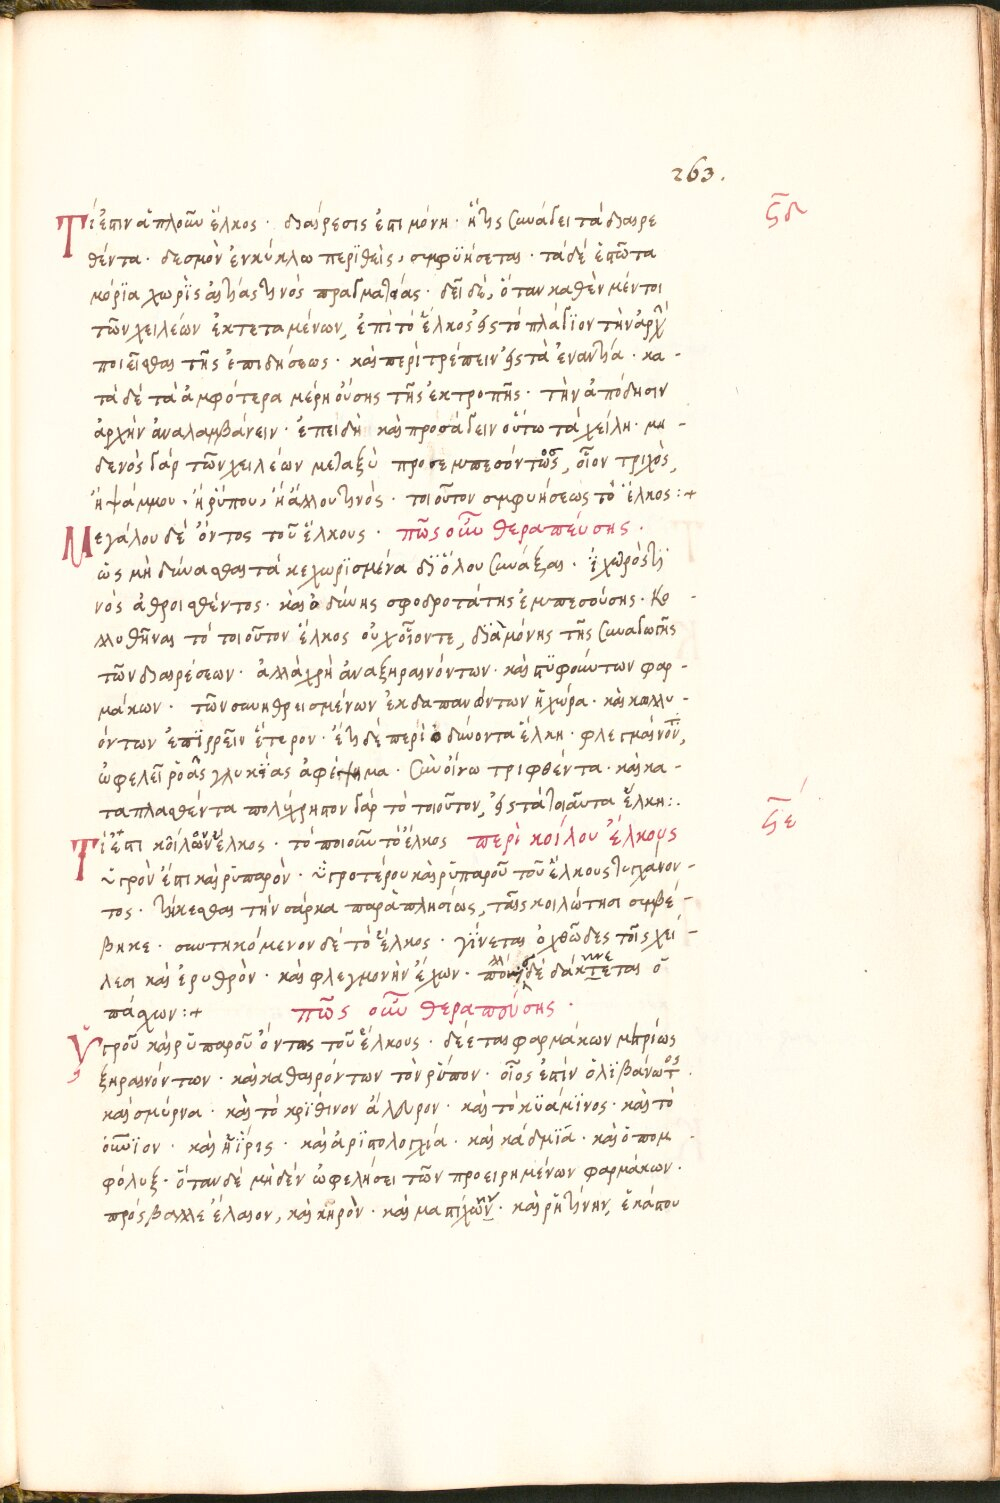 263.
Τί ἐστιν ἁπλοῦν ἕλκος · διαίρεσις ἐστι μόνη · ἥτις συνάγει τὰ διαιρε
ϟδ
θέντα · δεσμὸν ἐν κύκλω περϊθεὶς, συμφϋήσεται · τὰ δέ
μόρϊα χωρὶς αἰτίας τινὸς πραγματείας · δεῖ δὲ, ὅταν καθὲν μέντοι
τῶν χειλέων ἐκτεταμένων, ἐπὶ τὸ ἕλκος εἰς τὸ πλάγϊον τὴν ἀρχὴ
ποιεῖσθαι τῆς ἐπιδήσεως · καὶ περιτρέπειν εἰς τὰ ἐναντία · κα -
τὰ δὲ τὰ ἀμφότερα μέρη οὔσης τῆς ἐκτροπῆς · τὴν ἀπόδησιν
ἀρχὴν ἀναλαμβάνειν · ἐπειδὴ καὶ προσάγειν οὕτω τὰ χείλη · μη -
δενὸς γάρ τῶν χειλέων μεταξὺ προσεμπεσόντος, οἷον τριχὸς,
ἢ ψάμμου · ἢ ῥύπου, ἢ ἄλλου τινὸς · τοιοῦτον συμφυήσεως τὸ ἕλκος :+
Μεγάλου δὲ ὄντος τοῦ ἕλκους · πῶς οὖν θεραπεύσης ·
ὡς μὴ δύνασθαι τὰ κεχωρϊσμένα δϊ ὅλου συνάξαι · ἰχῶρός τϊ
νὸς ἀθροισθέντος · καὶ ὀδύνης σφοδροτάτης ἐμπεσούσης · κο -
λλυθῆναι τὸ τοιοῦτον ἕλκος οὐχ οἷον τε, δϊὰ μόνης τῆς συναγωγῆς
τῶν διαιρέσεων · ἀλλὰ χρὴ ἀναξηραινόντων · καὶ φαρ -
μάκων · τῶν συνηθρεισμένων ἐκδαπανώντων ἡ χώρα · καὶ κωλυ -
όντων ἐπϊρρεῖν ἕτερον · ἔτι δὲ περὶ ὀδύνοντα ἕλκη · φλεγμαίνου,
ὠφελεῖ ῥοᾶς γλυκείας ἀφέψημα · σὺν οἴνω τριφθέντα · καὶ κα -
ταπλασθέντα πολύχρηστον γάρ τὸ τοιοῦτον, εἰς τὰ τοιαῦτα ἕλκη :.
Τί ἐστι κοῖλων ἕλκος · τὸ ποιοῦν τὸ ἕλκος περὶ κοίλου ἕλκους
ϟε
ὑγρὸν ἐστι καὶ ῥϋπαρὸν · ὑγροτέρου καὶ ῥϋπαροῦ τοῦ ἕλκους τυγχάνον -
τος · τήκεσθαι τὴν σάρκα παραπλησίως, ταῖς κοιλώτησι συμβέ -
βηκε · συντηκόμενον δὲ τὸ ἕλκος · γίνεται ὀχθῶδες τοῖς χεί -
λεσι καὶ ἐρυθρὸν · καὶ φλεγμονὴν ἔχων · δὲ δάκνεται ὁ
πάσχων :+ πῶς οὖν θεραπεύσης ·
Ὑγροῦ καὶ ῥϋπαροῦ ὄντος τοῦ ἕλκους · δέεται φαρμάκων μετρίως
ξηραινόντων · καὶ καθαιρόντων τὸν ῥύπον · οἷος ἐστὶν ὀλϊβάνωτος ·
καὶ σμύρνα · καὶ τὸ κρϊθινον ἄλευρον · καὶ τὸ κϋάμϊνος · καὶ τὸ
καὶ ἡ ἴρις · καὶ ἀρϊστολοχία · καὶ κάδμϊα · καὶ ὁ πομ -
φόλυξ · ὅταν δὲ μὴδὲν ὠφελήσει τῶν προειρημένων φαρμάκων ·
πρόσβαλλε ἔλαιον, καὶ κηρὸν · καὶ μαστίχην · καὶ ῥητίνην, ἑκάστου